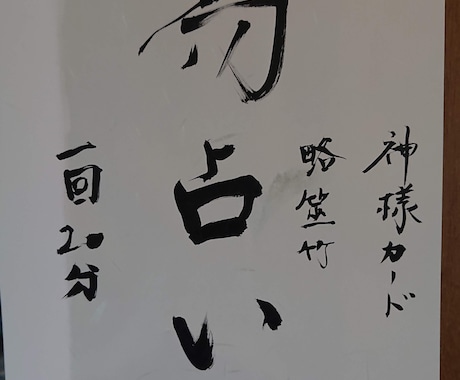 神様カード
略筮竹
易占い
一回20分